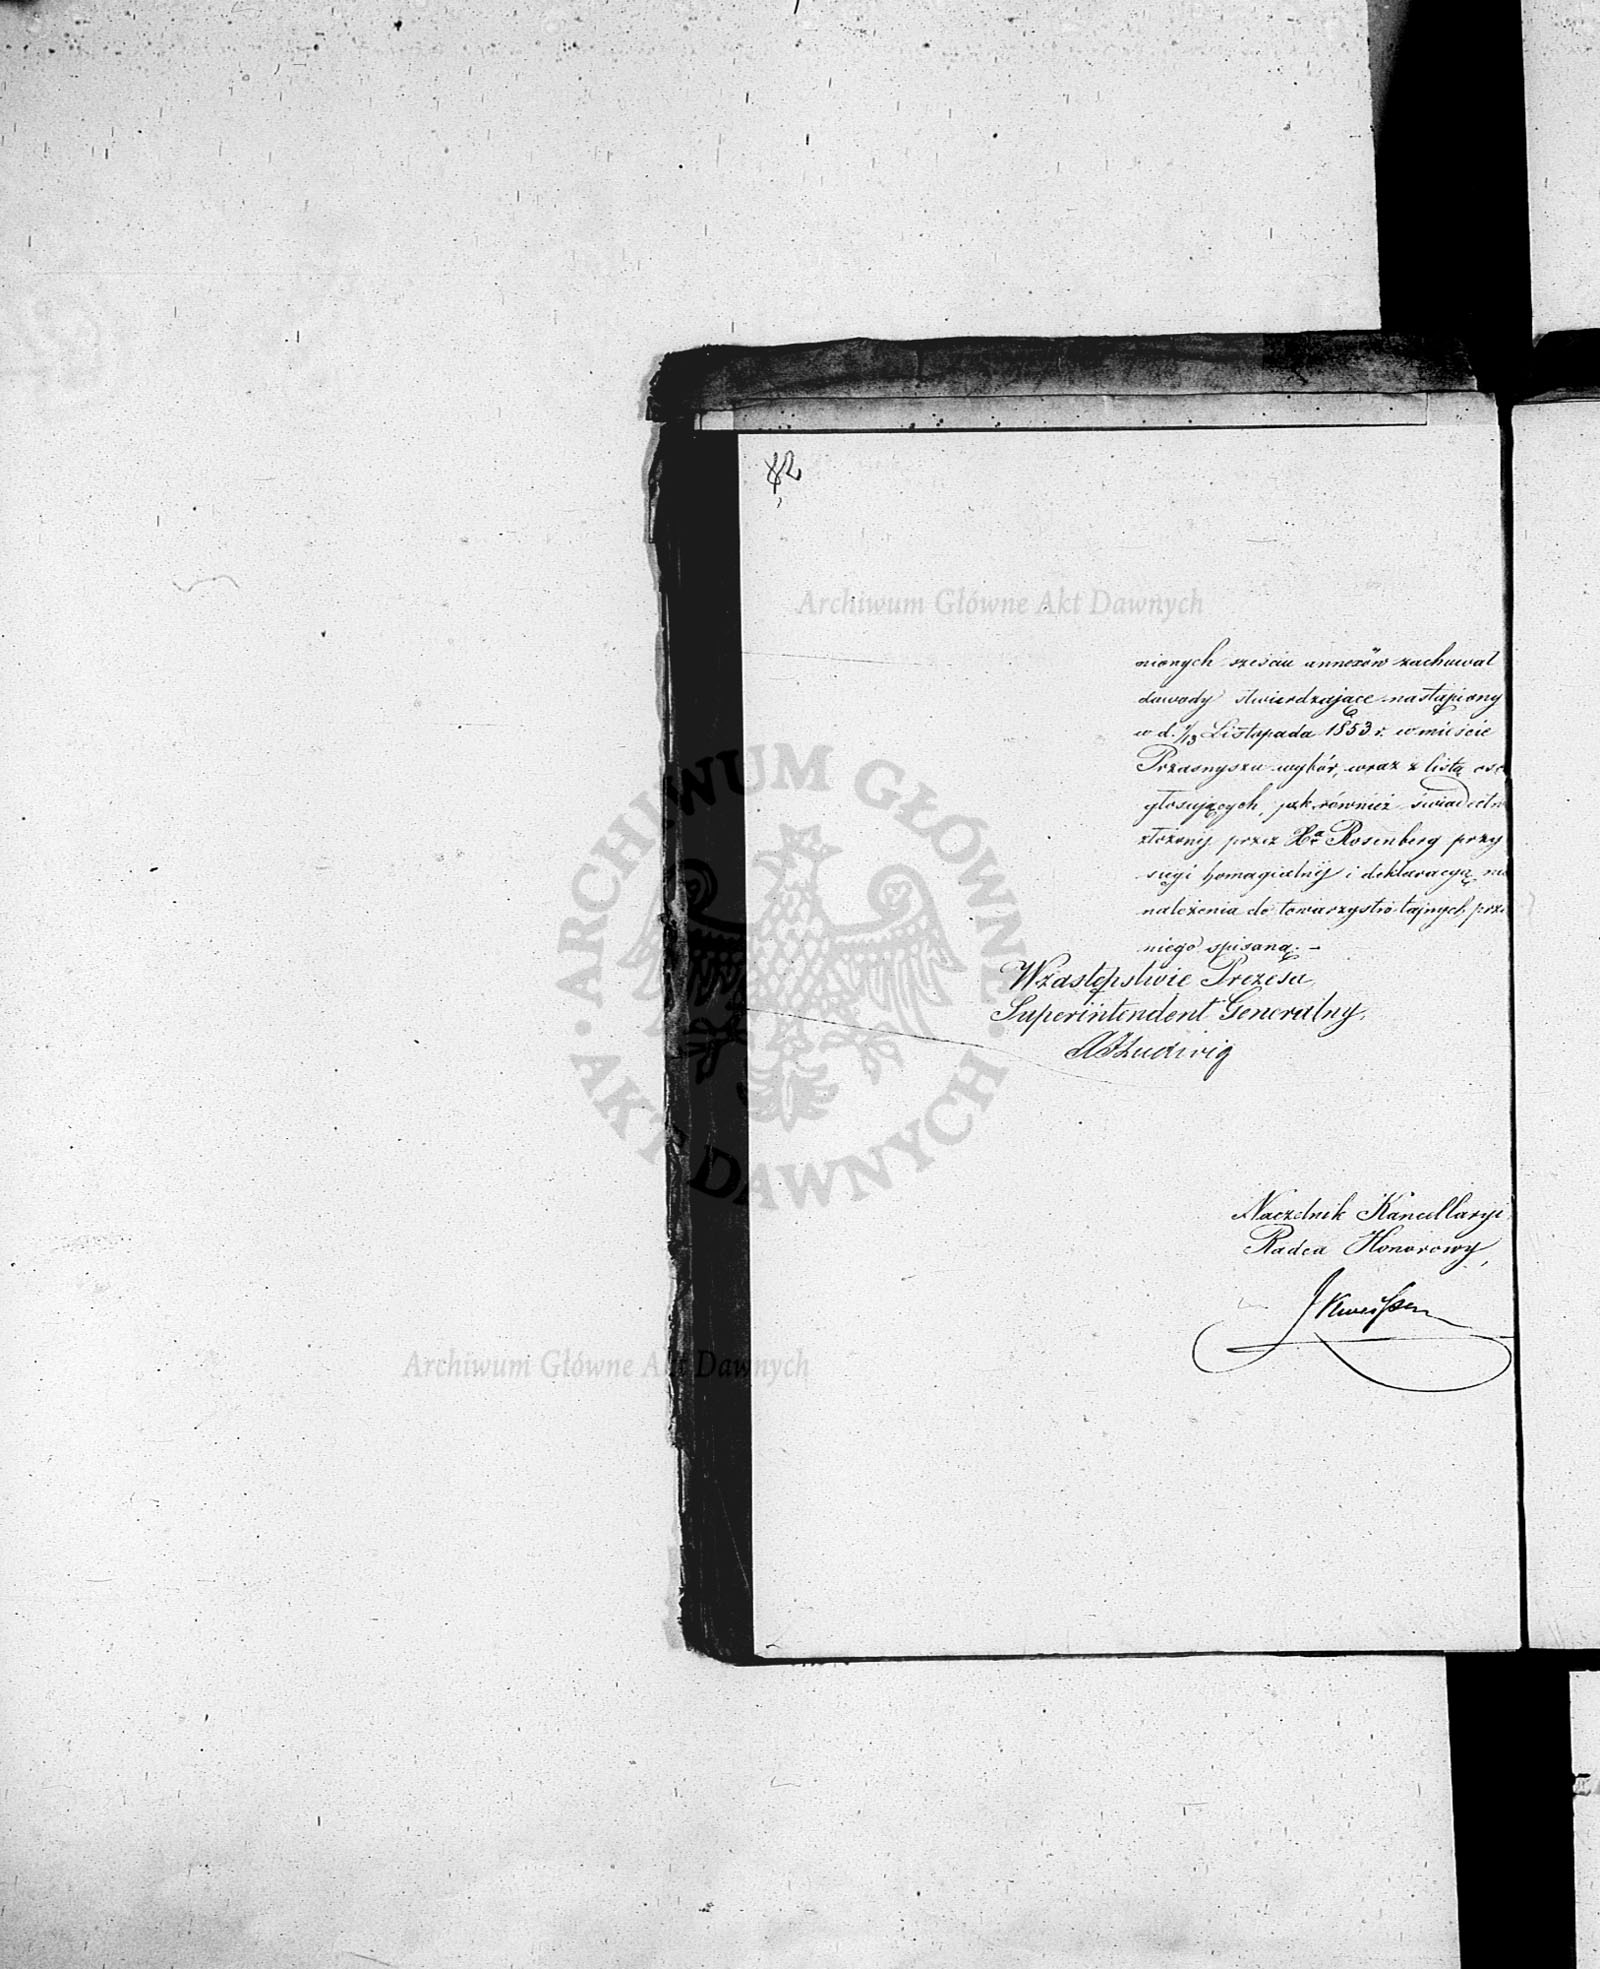 82
Archiwum Główne Akt Dawnych
nionych sześciu annexów zachował
dowody stwierdzające nastąpiony
w d. 1/13 Listopada 1853 r. w mieście
Przasnyszu wybór, wraz z listą osó
głosujących, jak również świadectw
złożonéj przez Xa Rosenberg przy
sięgi homagialnéj i deklaracyą nie
należenia do towarzystw tajnych prze
niego spisaną. –
W zastępstwie Prezesa
Superintendent Generalny,
Ludwig
ARCHIWUM GŁÓWNE AKT DAWNYCH
Naczelnik Kancellaryi
Radca Honorowy,
Archiwum Główne Akt Dawnych